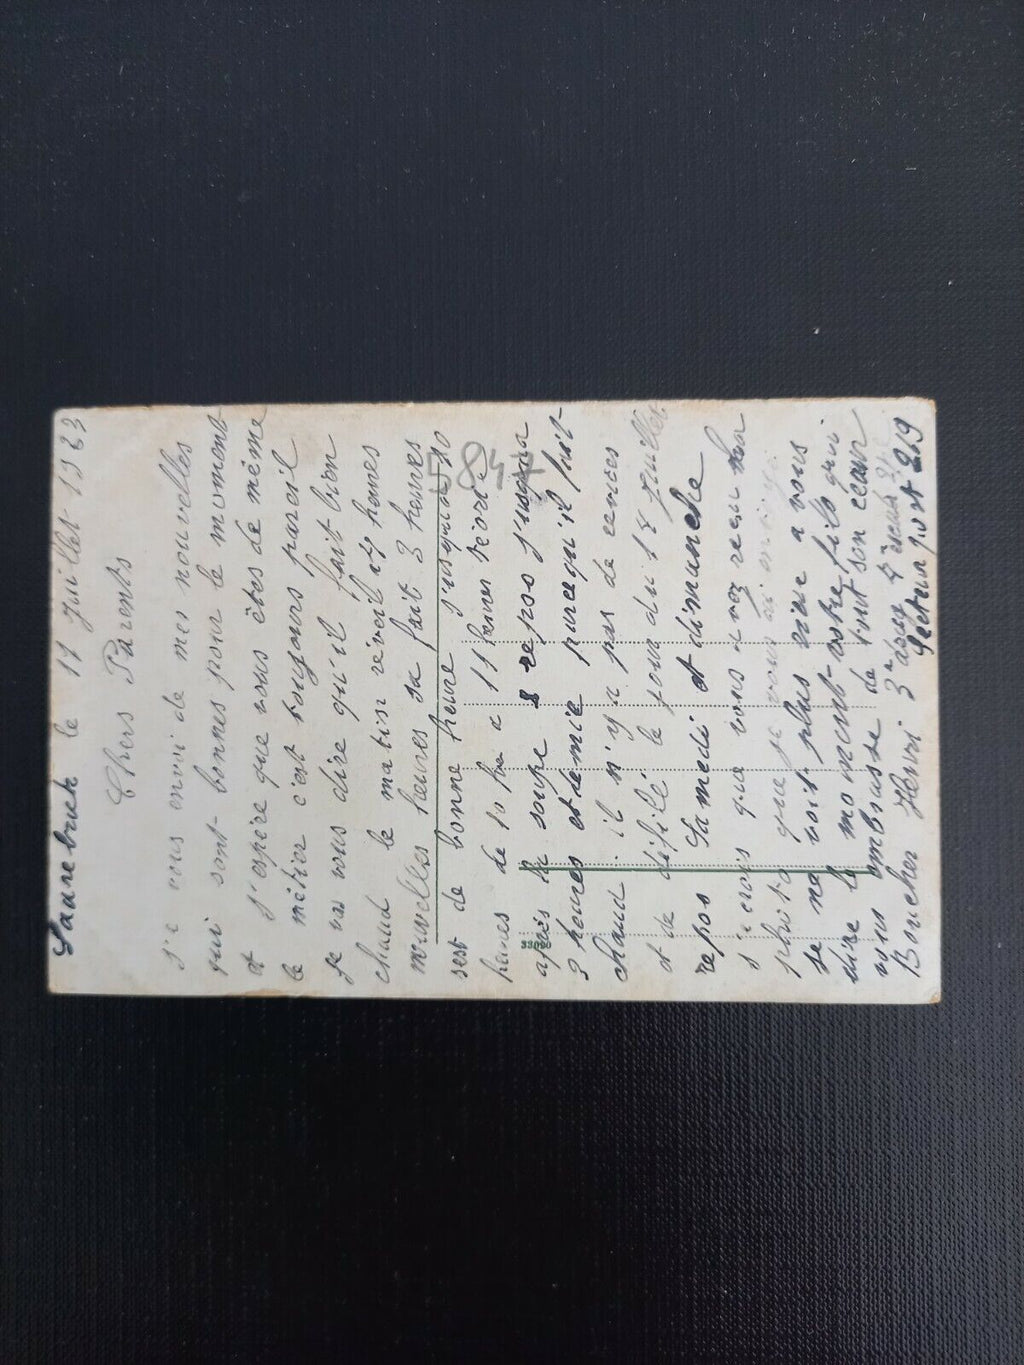 Saarebruck le 11 Juillet 1923
Chers Parents
J'e vous envoi de mes nouvelles
qui sont bonnes pour le moment
et J'espère que vous êtes de même
le métier c'est toujours pareil
Je vas vous dire qu'il fait bien
chaud le matin réveil heures
heures sa fait 3 heures
sest de bonne heure J'usqua 10
heures de 10 hra a 11 heures
après la soupe repos J'usqua
3 heures et demie parcequ'il fait
chaud il n'y a pas de cerices
et de défilé le jour du 14 Juillet
repos Samedi et dimanche
J'e crois que vous avez reçu ma
photo que je vous ai
Je ne voit plus rien a vous
dire le moment votre fils qui
vous embrasse de tout son cœur
Boucher Henri 3e
Secteur post 219
5847
33090